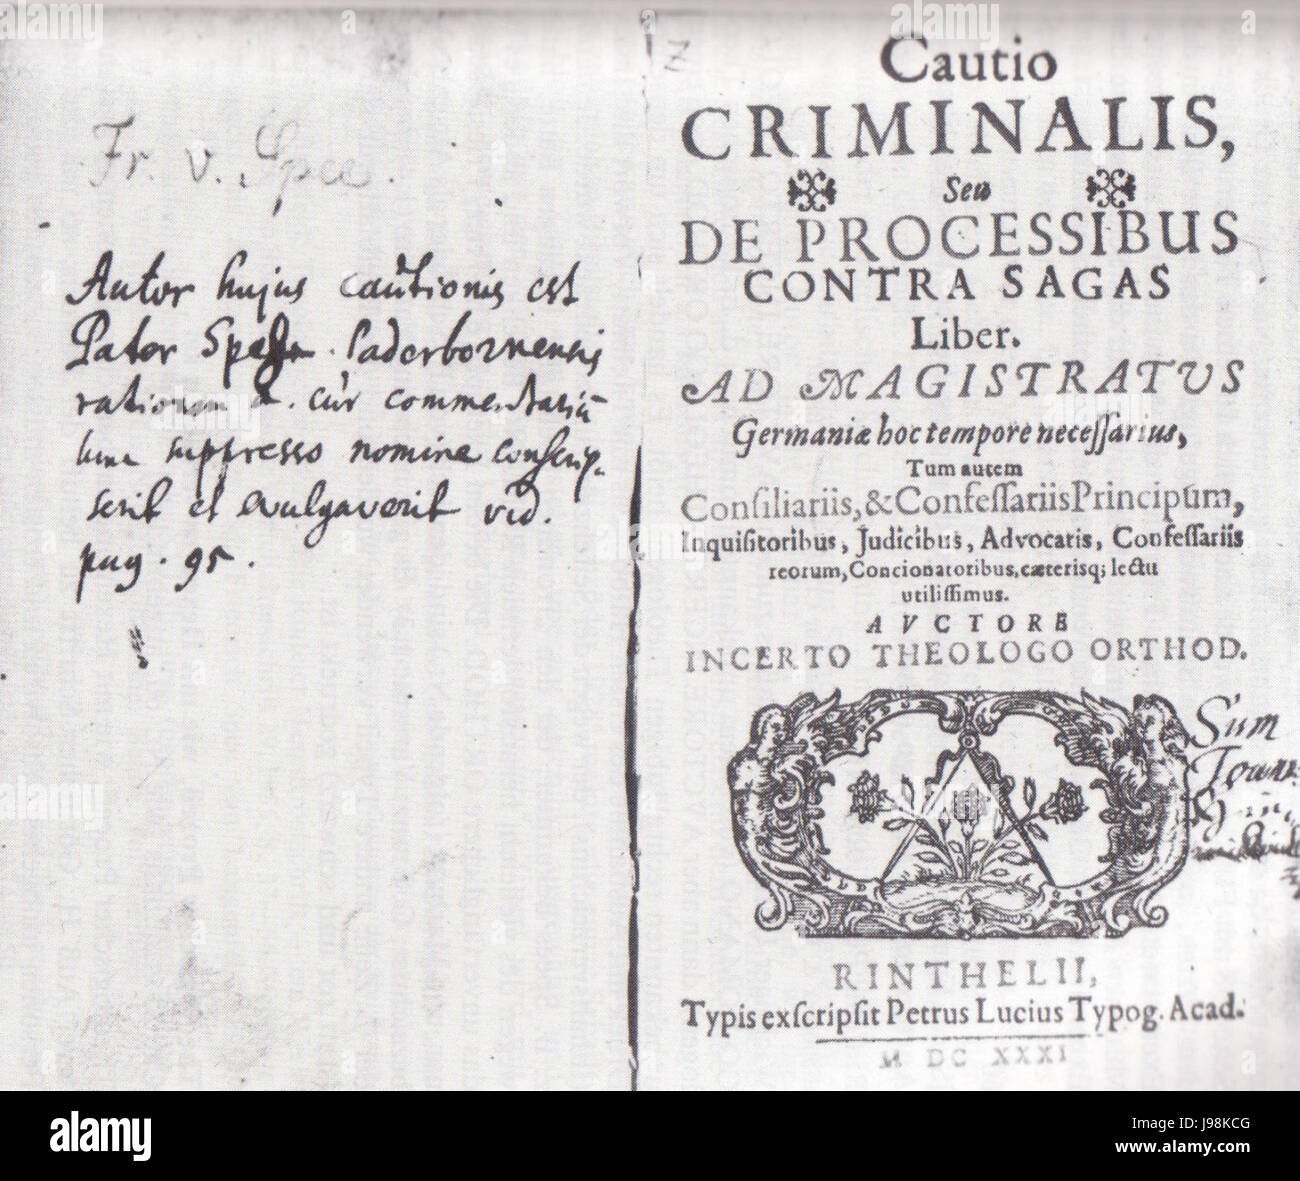 Fr. v. Spee.
Autor hujus cautionis est
Pater Spee. Paderbornensis
rationem cur commentariū
hunc suppresso nomine conscrip-
serit et evulgaverit vid.
pag. 95.
Z
Cautio
CRIMINALIS,
Seu
DE PROCESSIBUS
CONTRA SAGAS
Liber.
AD MAGISTRATUS
Germaniæ hoc tempore neceſſarius,
Tum autem
Conſiliariis, & Confeſſariis Principum,
Inquiſitoribus, Judicibus, Advocatis, Confeſſariis
reorum, Concionatoribus, cæterisq; lectu
utiliſſimus.
AVCTORE
INCERTO THEOLOGO ORTHOD.
Sum
RINTHELII,
Typis exſcripſit Petrus Lucius Typog. Acad.
M DC XXXI
alamy
Image ID: J98KCG
www.alamy.com